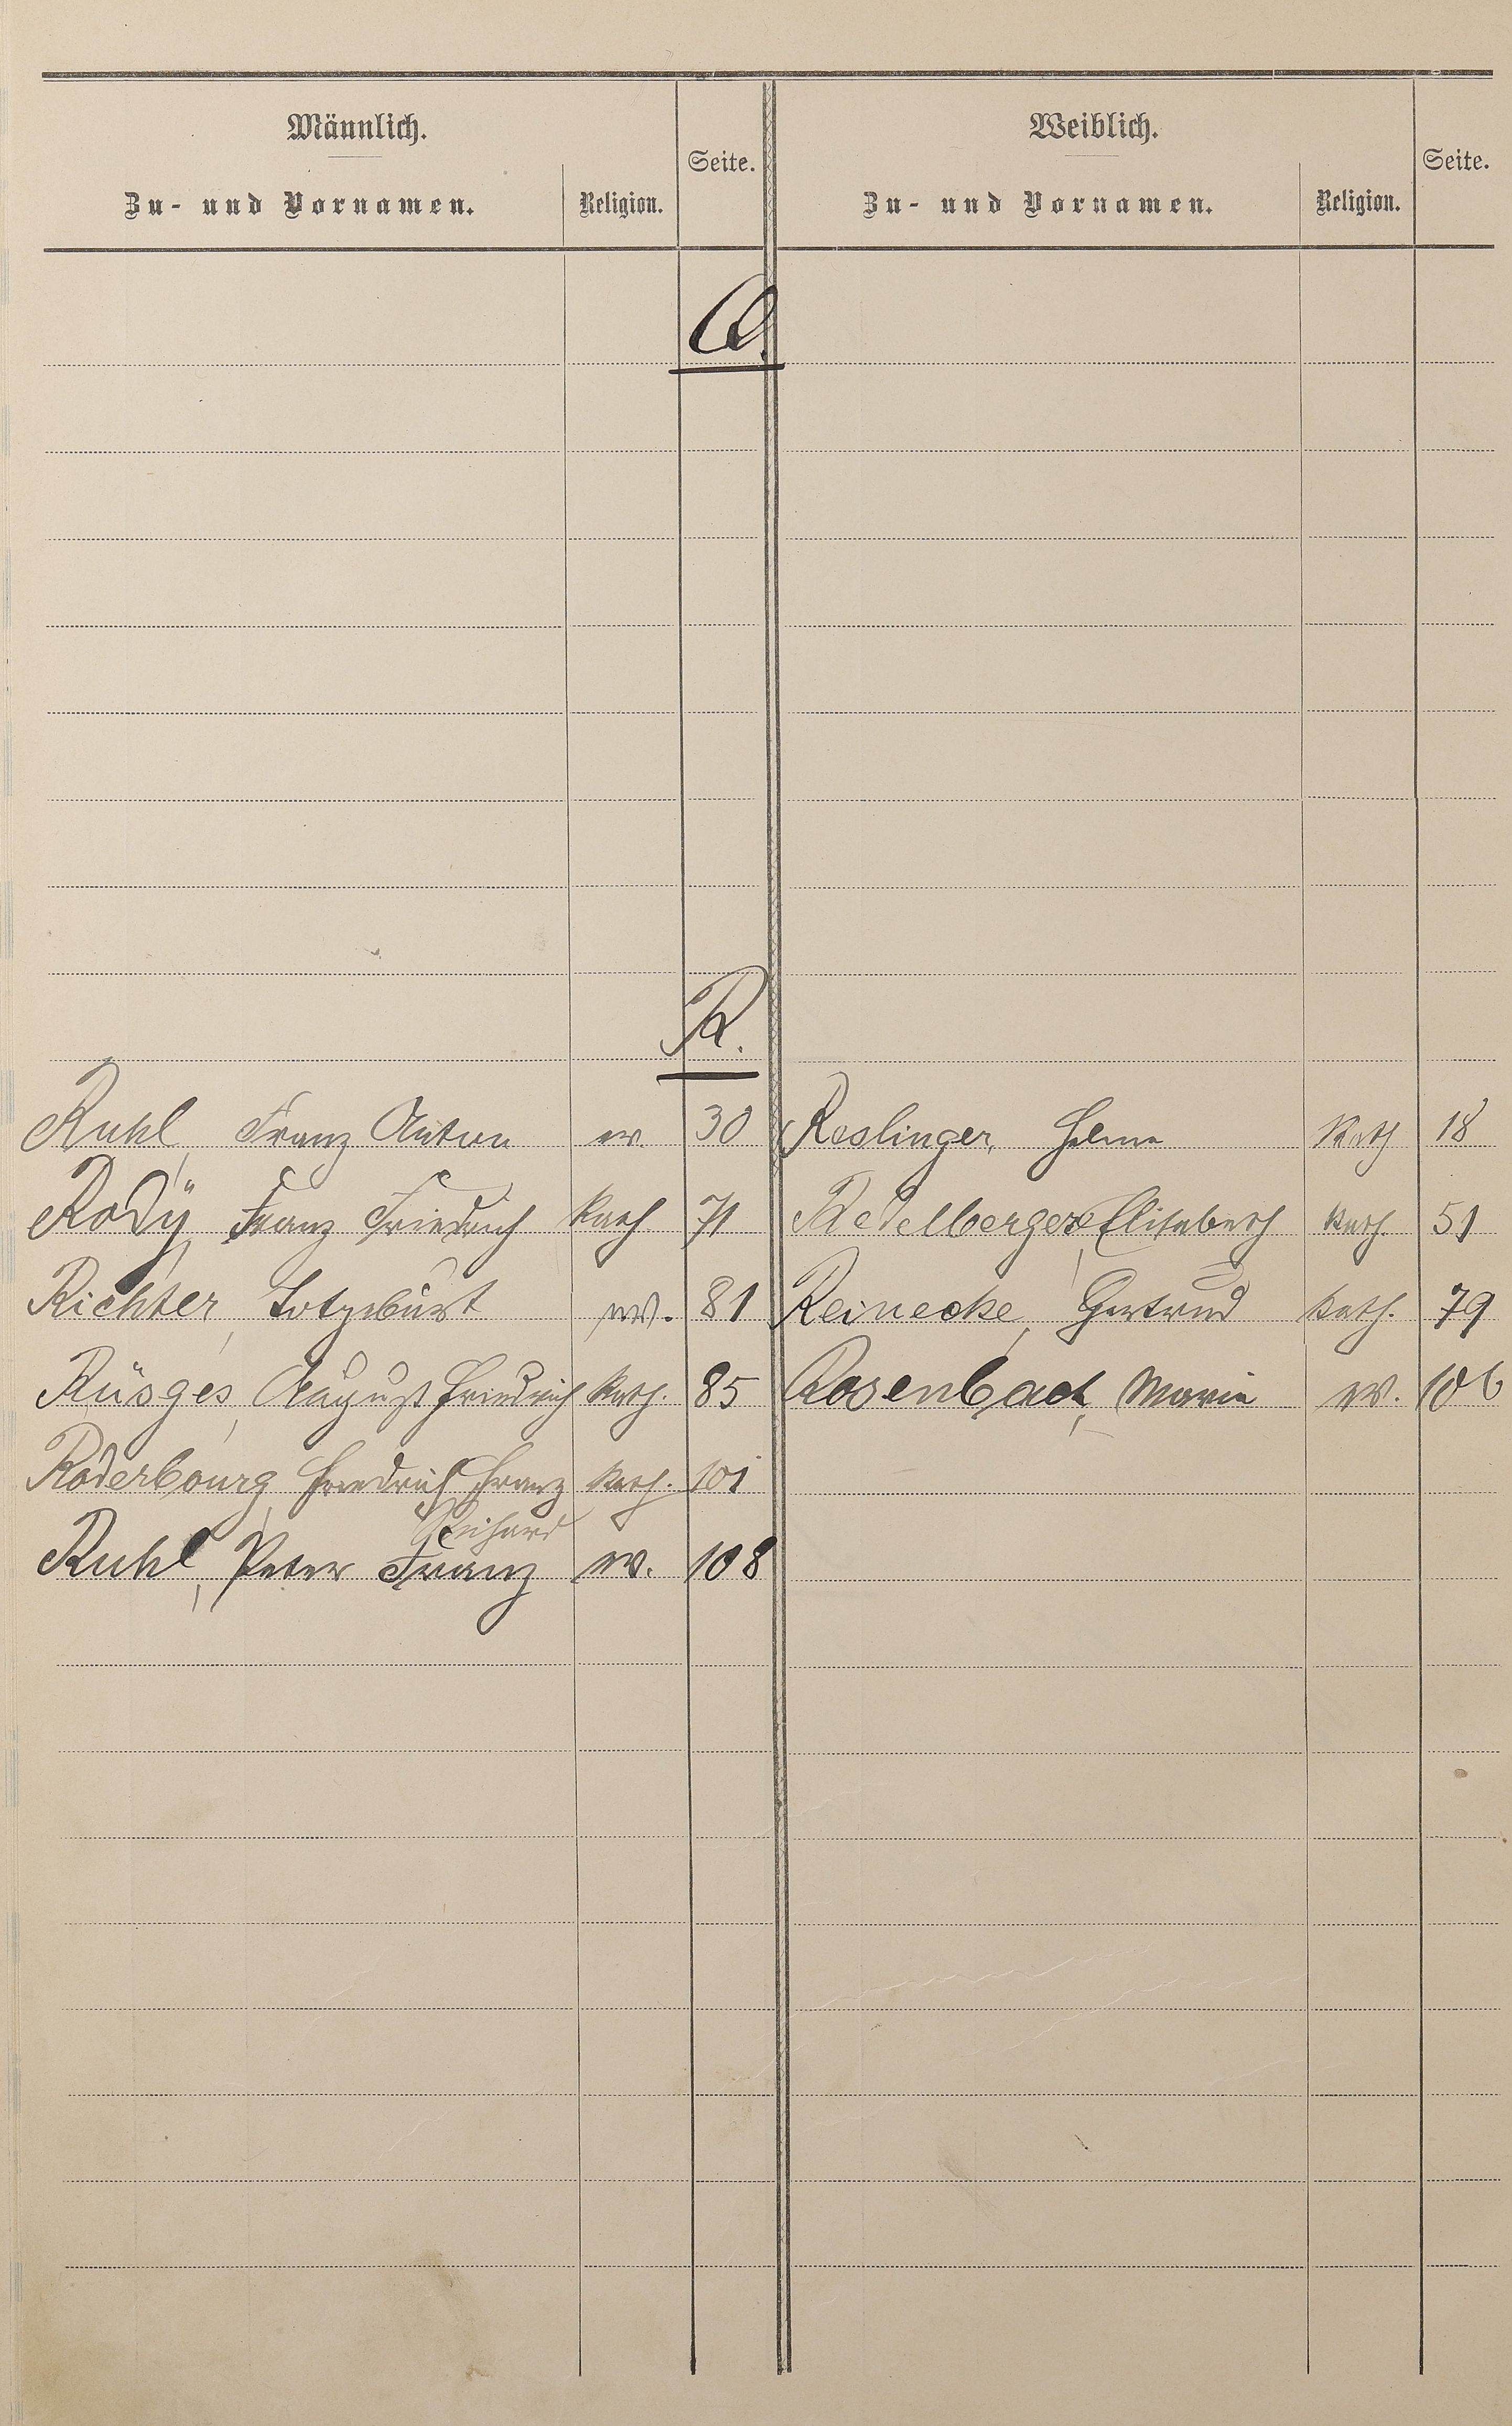 Männlich.
Zu- und Vornamen.
Religion.
Seite.
Weiblich.
Zu- und Vornamen.
Religion.
Seite.
Q.
R.
Ruhl, Franz Anton ev 30 Reslinger, Helene Kath 18
Rody, Franz Friedrich Kath 71 Redelberger Elisabeth Kath. 51
Richter, Totgeburt ev. 81 Reinecke, Gertrud Kath. 79
Rüsges, August Friedrich Kath. 85 Rosenbach, Maria ev. 106
Röderbourg, Friedrich Franz Kath. 101
Richard
Ruhl, Peter Franz ev. 108